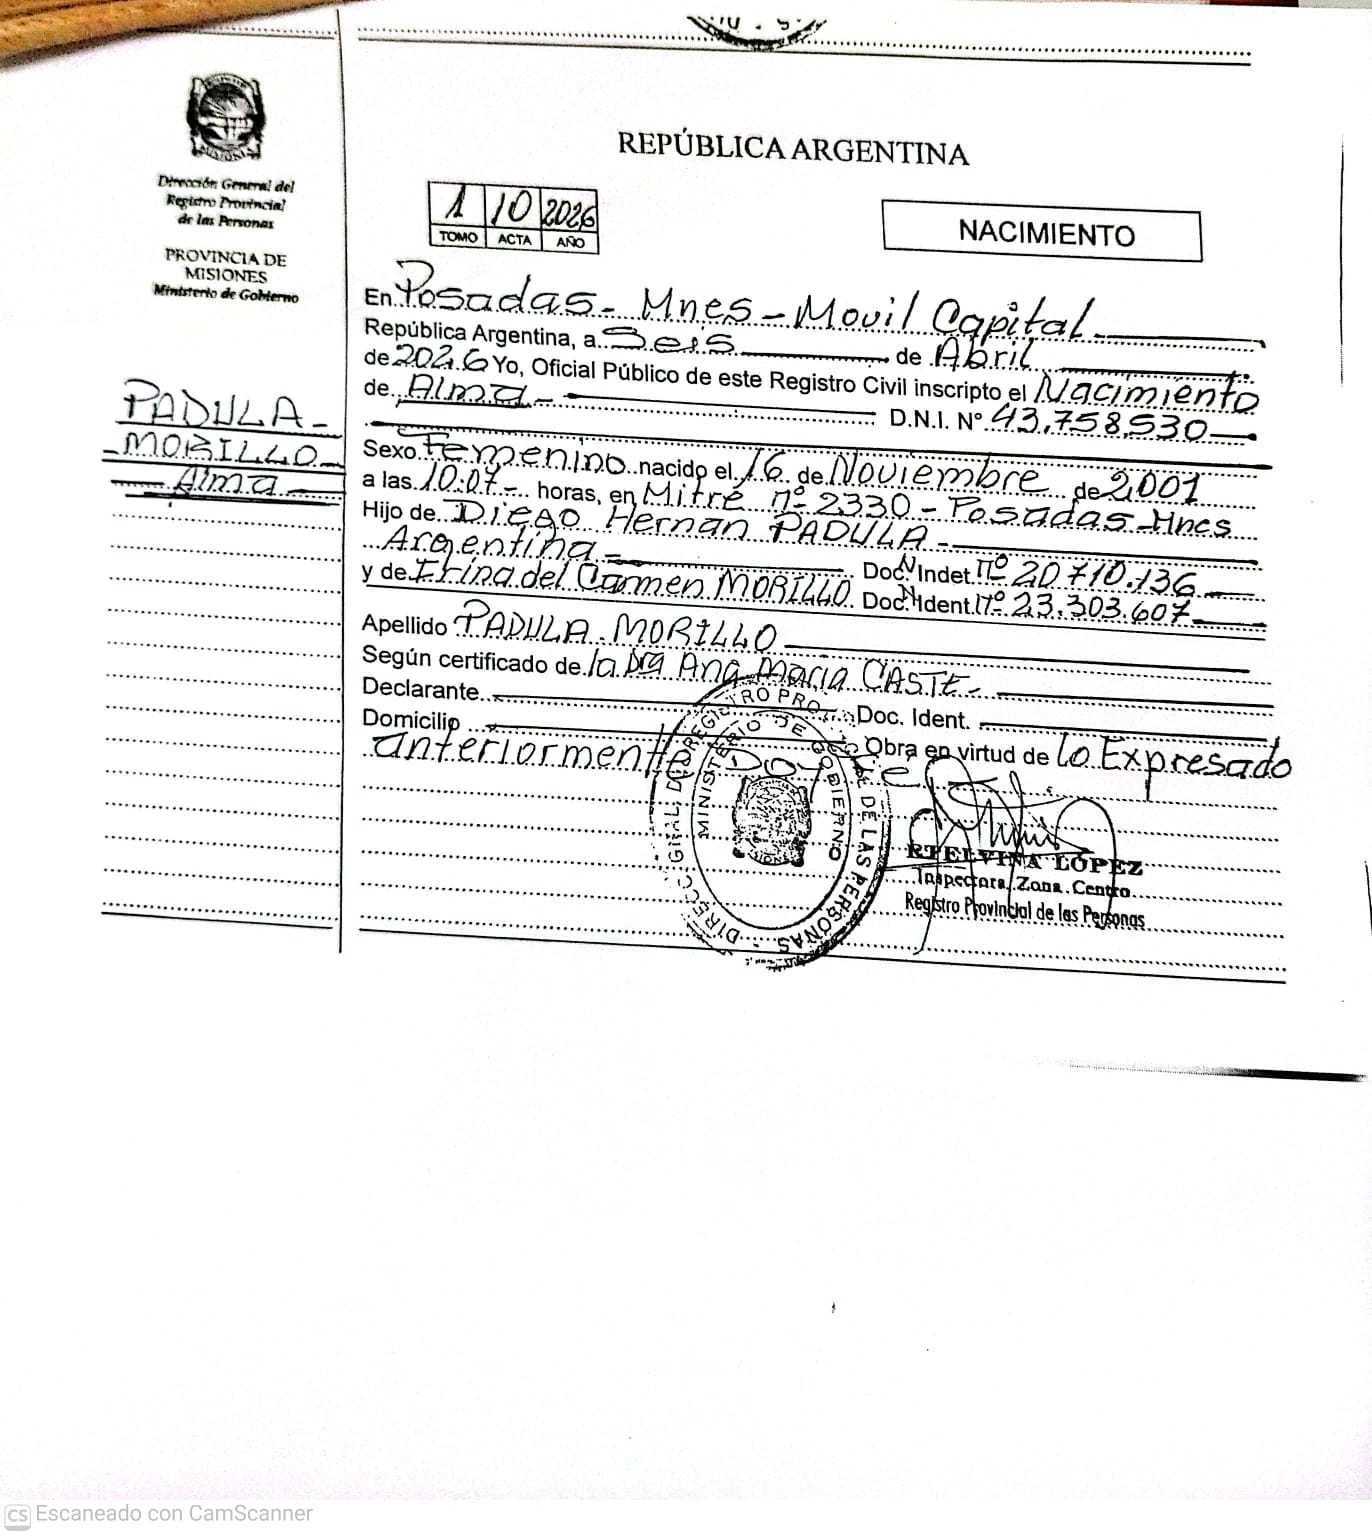 Dirección General del
Registro Provincial
de las Personas
PROVINCIA DE
MISIONES
Ministerio de Gobierno
PADULA
MORILLO
Alma
REPÚBLICA ARGENTINA
1 10 2026
TOMO ACTA AÑO
NACIMIENTO
En Posadas - Mnes - Movil Capital
República Argentina, a Seis de Abril
de 2026 Yo, Oficial Público de este Registro Civil inscripto el Nacimiento
de Alma - D.N.I. Nº 43.758.530
Sexo Femenino nacido el 16 de Noviembre de 2001
a las 10:07 - horas, en Mitre nº 2330 - Posadas - Mnes
Hijo de Diego Hernan PADULA -
Argentina - Doc. Indet. Nº 20.710.136
y de Erina del Carmen MORILLO Doc. Ident. Nº 23.303.607
Apellido PADULA MORILLO
Según certificado de la Dra Ana Maria CASTE -
Declarante Doc. Ident.
Domicilio Obra en virtud de lo Expresado
anteriormente Doy Fe
DIRECC. GRAL. DEL REGISTRO PROVINCIAL DE LAS PERSONAS
MINISTERIO DE GOBIERNO
RTELVINA LÓPEZ
Inspectora Zona Centro
Registro Provincial de las Personas
CS Escaneado con CamScanner